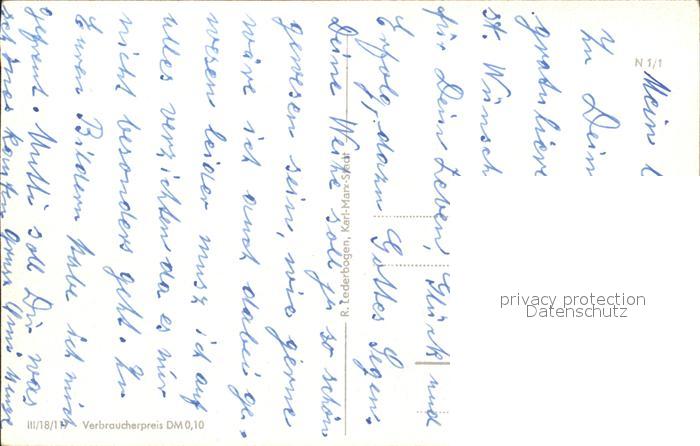 Mein l
Zu Dein
gratuliere
st. Wünsch
für Dein Leben, Glück und
Erfolg, dann Gottes Segen.
Deine Weihe soll ja so schön
gewesen sein, wie gerne
wäre ich auch dabei ge-
wesen leider muss ich auf
alles verzichten da es mir
nicht besonders geht. Zu
Euren Bildern habe ich mich
gefreut. Mutti soll Dir was
kaufen
N 1/1
R. Lederbogen, Karl-Marx-Stadt
III/18/11 Verbraucherpreis DM 0,10
privacy protection
Datenschutz